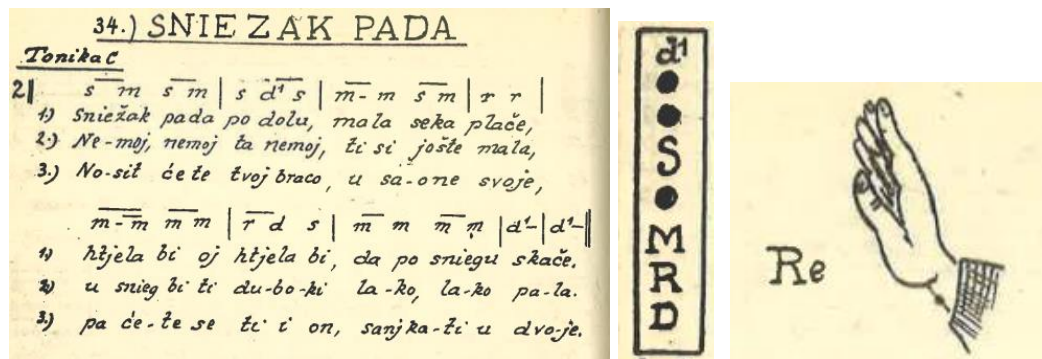 34.) SNIEZAK PADA
Tonika C
2‖ s m s m | s d¹ s | m - m s m | r r |
1.) Sniežak pada po dolu, mala seka plače,
2.) Ne-moj, nemoj ta nemoj, ti si jošte mala,
3.) No-sit će te tvoj braco, u sa-one svoje,
m - m m m | r d s | m m m m | d¹- | d¹- ‖
1) htjela bi oj htjela bi, da po sniegu skače.
2) u snieg bi ti du-bo-ki la-ko, la-ko pa-la.
3.) pa će-te se ti i on, sanjka-ti u dvo-je.
d¹
S
M
R
D
Re